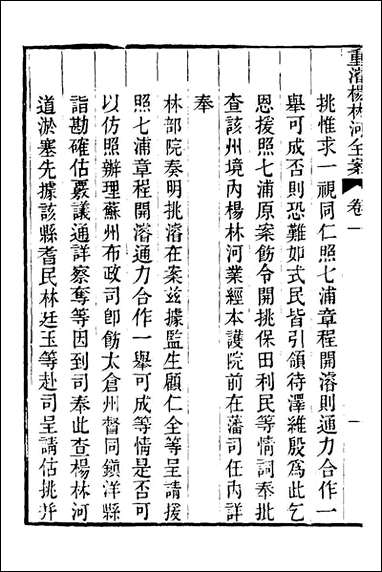 重濬楊林河全案 卷一 一
挑惟求一視同仁照七浦章程開濬則通力合作一
舉可成否則恐難如式民皆引領待澤維殷爲此乞
恩援照七浦原案飭令開挑保田利民等情詞奉批
查該州境內楊林河業經本護院前在藩司任內詳
奉
林部院奏明挑濬在案茲據監生顧仁全等呈請援
照七浦章程開濬通力合作一舉可成等情是否可
以仿照辦理蘇州布政司卽飭太倉州督同鎭洋縣
詣勘確估覈議通詳察奪等因到司奉此查楊林河
道淤塞先據該縣耆民林廷玉等赴司呈請估挑幷